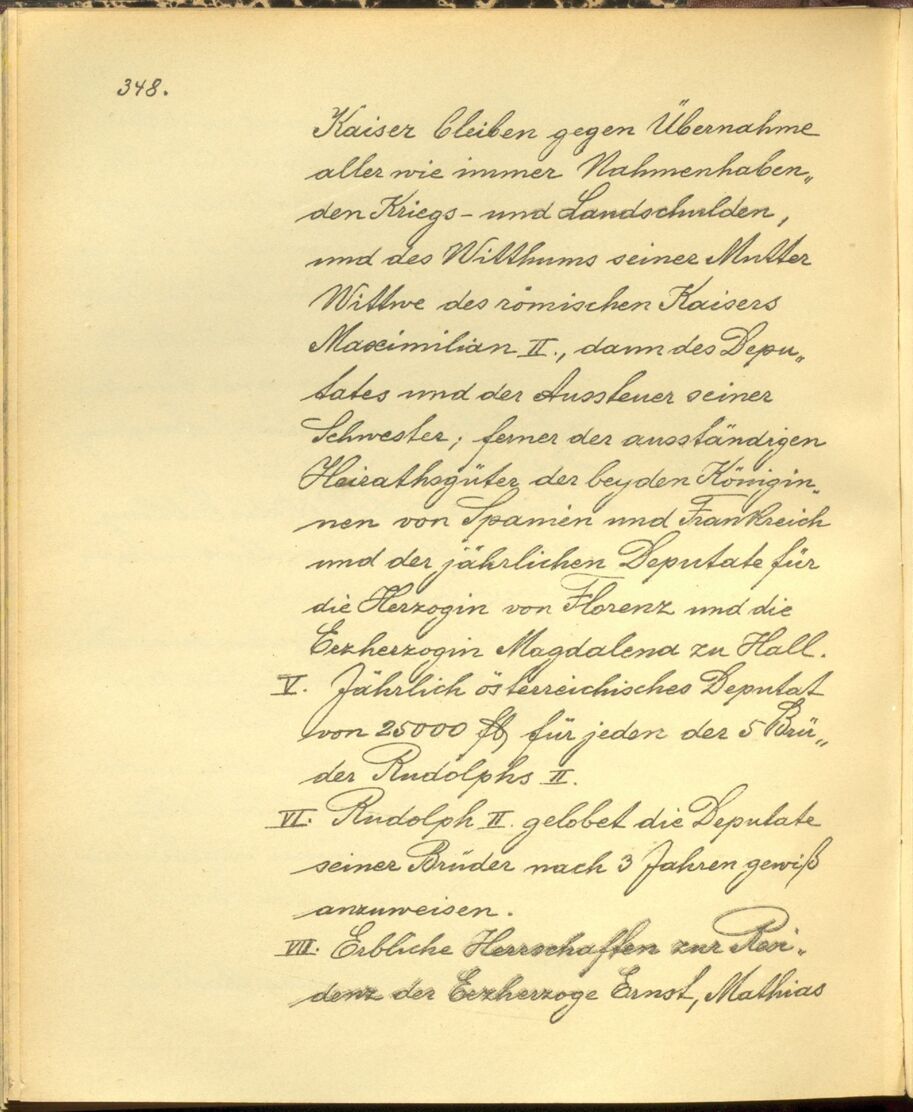 348.
Kaiser bleiben gegen Übernahme
aller wie immer Nahmenhaben„
den Kriegs- und Landschulden,
und des Witthums seiner Mutter
Wittwe des römischen Kaisers
Maximilian II., dann des Depu„
tates und der Aussteuer seiner
Schwester; ferner der ausständigen
Heirathsgüter der beyden Königin„
nen von Spanien und Frankreich
und der jährlichen Deputate für
die Herzogin von Florenz und die
Erzherzogin Magdalena zu Hall.
V. Jährlich österreichisches Deputat
von 25000 fl für jeden der 5 Brü„
der Rudolphs II.
VI. Rudolph II. gelobet die Deputate
seiner Brüder nach 3 Jahren gewiß
anzuweisen.
VII. Erbliche Herrschaften zur Resi„
denz der Erzherzoge Ernst, Mathias